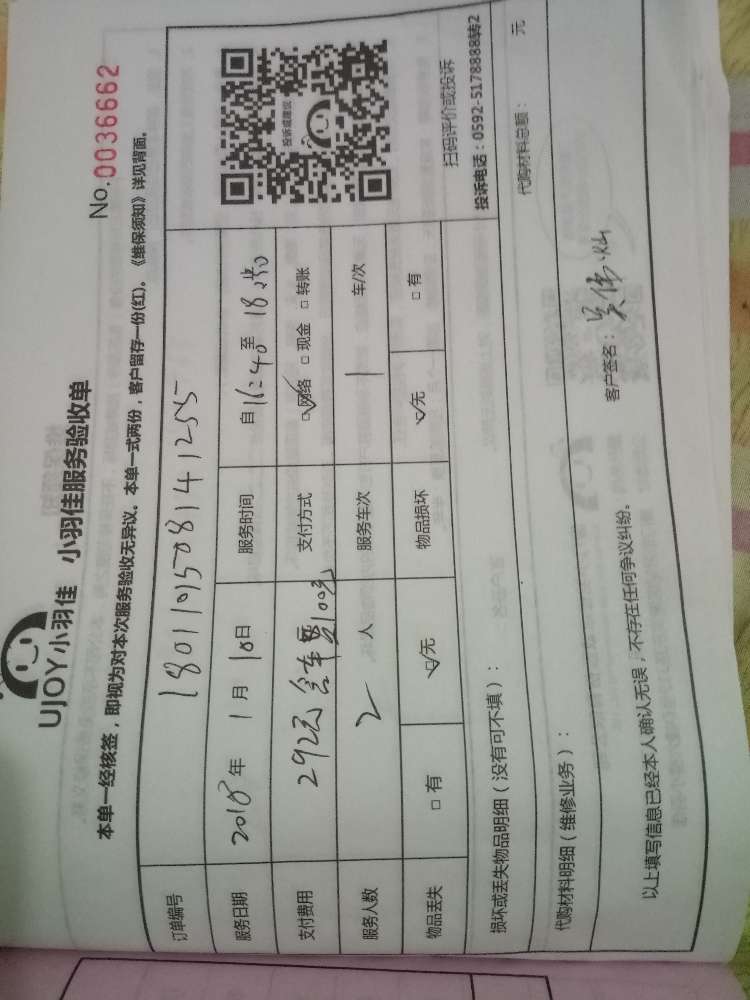 UJOY小羽佳 小羽佳服务验收单
No.0036662
本单一经核签，即视为对本次服务验收无异议。本单一式两份，客户留存一份(红)。《维保须知》详见背面。
订单编号 1801101508141255
服务日期 2018年 1月 10日 服务时间 自16:40至18点
支付费用 292元含车费100元 支付方式 网络 现金 转账
服务人数 2 人 服务车次 1 车/次
物品丢失 有 无 物品损坏 无 有
投诉或建议
扫码评价或投诉
投诉电话：0592-5178888转2
损坏或丢失物品明细（没有可不填）：
代购材料明细（维修业务）： 代购材料总额： 元
客户签名：吴伟灿
以上填写信息已经本人确认无误，不存在任何争议纠纷。